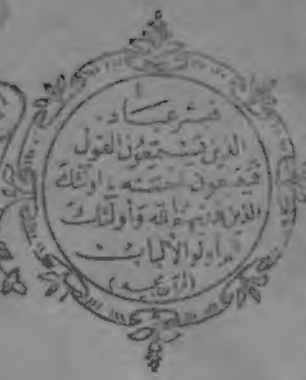 فبشر عباد
الذين يستمعون القول
فيتبعون أحسنه أولئك
الذين هديهم الله وأولئك
هم أولو الألباب